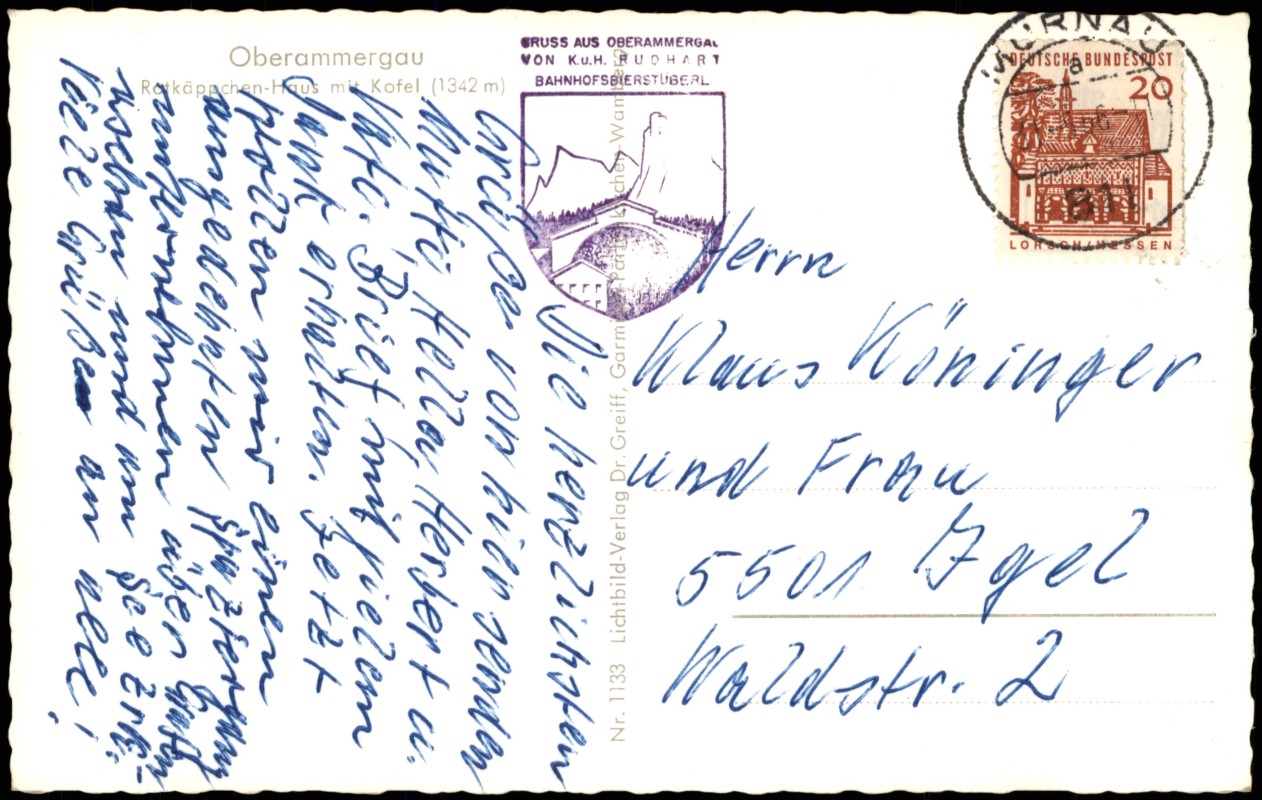 Oberammergau
Rotkäppchen-Haus mit Kofel (1342 m)
GRUSS AUS OBERAMMERGAU
VON K.u.H. RUDHART
BAHNHOFSBIERSTÜBERL
MURNAU
a
811
DEUTSCHE BUNDESPOST
20
LORSCH/HESSEN
Die herzlichsten
Grüße von hier senden
Mutti, Hella, Herbert u.
Vati. Brief mit vielem
Dank erhalten. Jetzt
wollen wir einen
ausgedehnten Spaziergang
unternehmen über
wochen und um See
Viele Grüße an alle!
Nr. 1133 Lichtbild-Verlag Dr. Greiff, Garmisch-Partenkirchen-Wamberg
Herrn
Klaus Köninger
und Frau
5501 Igel
Waldstr. 2